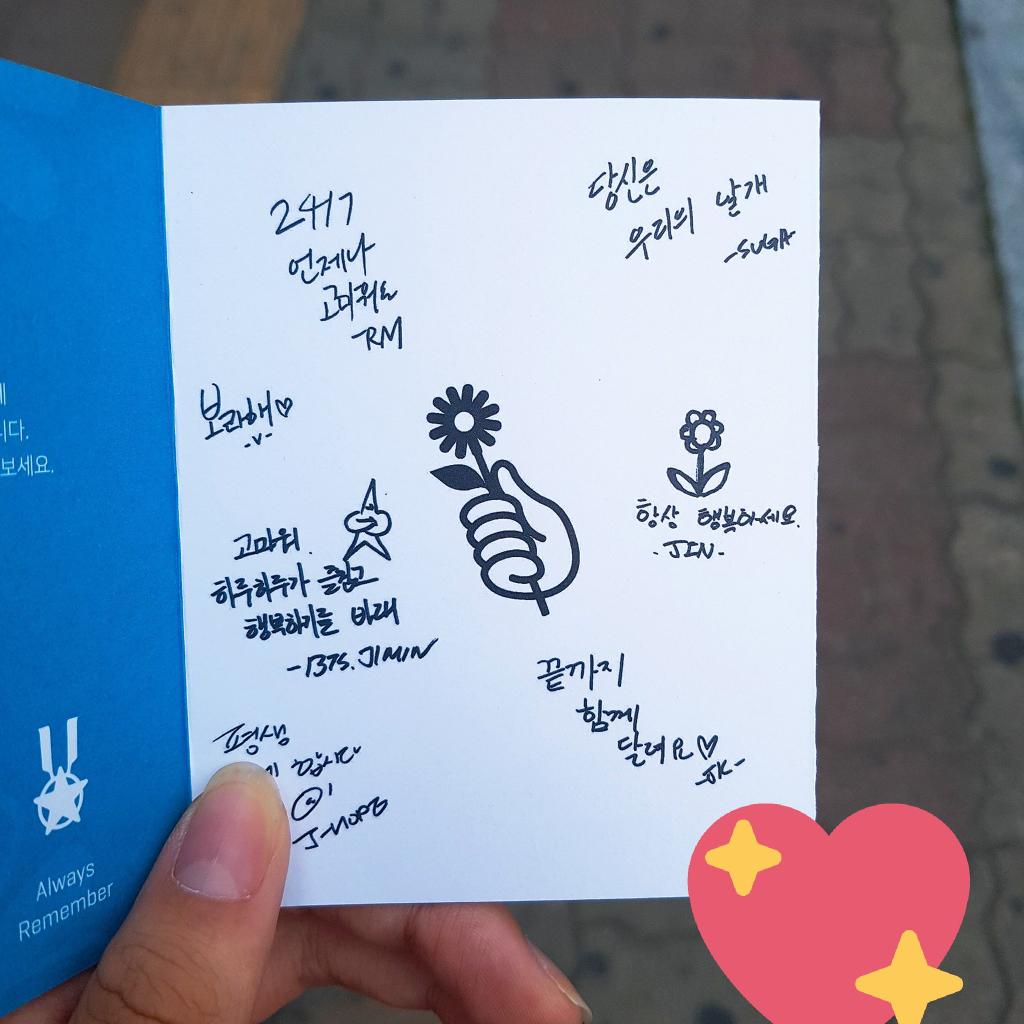 24/7
언제나
고마워요
-RM
당신은
우리의 날개
-SUGA-
보라해♡
-V-
항상 행복하세요.
-JIN-
고마워.
하루하루가 즐겁고
행복하기를 바래
-BTS. JIMIN
끝까지
함께
달려요♡
-JK-
평생
합시다
J-HOPE
니다.
보세요.
Always
Remember